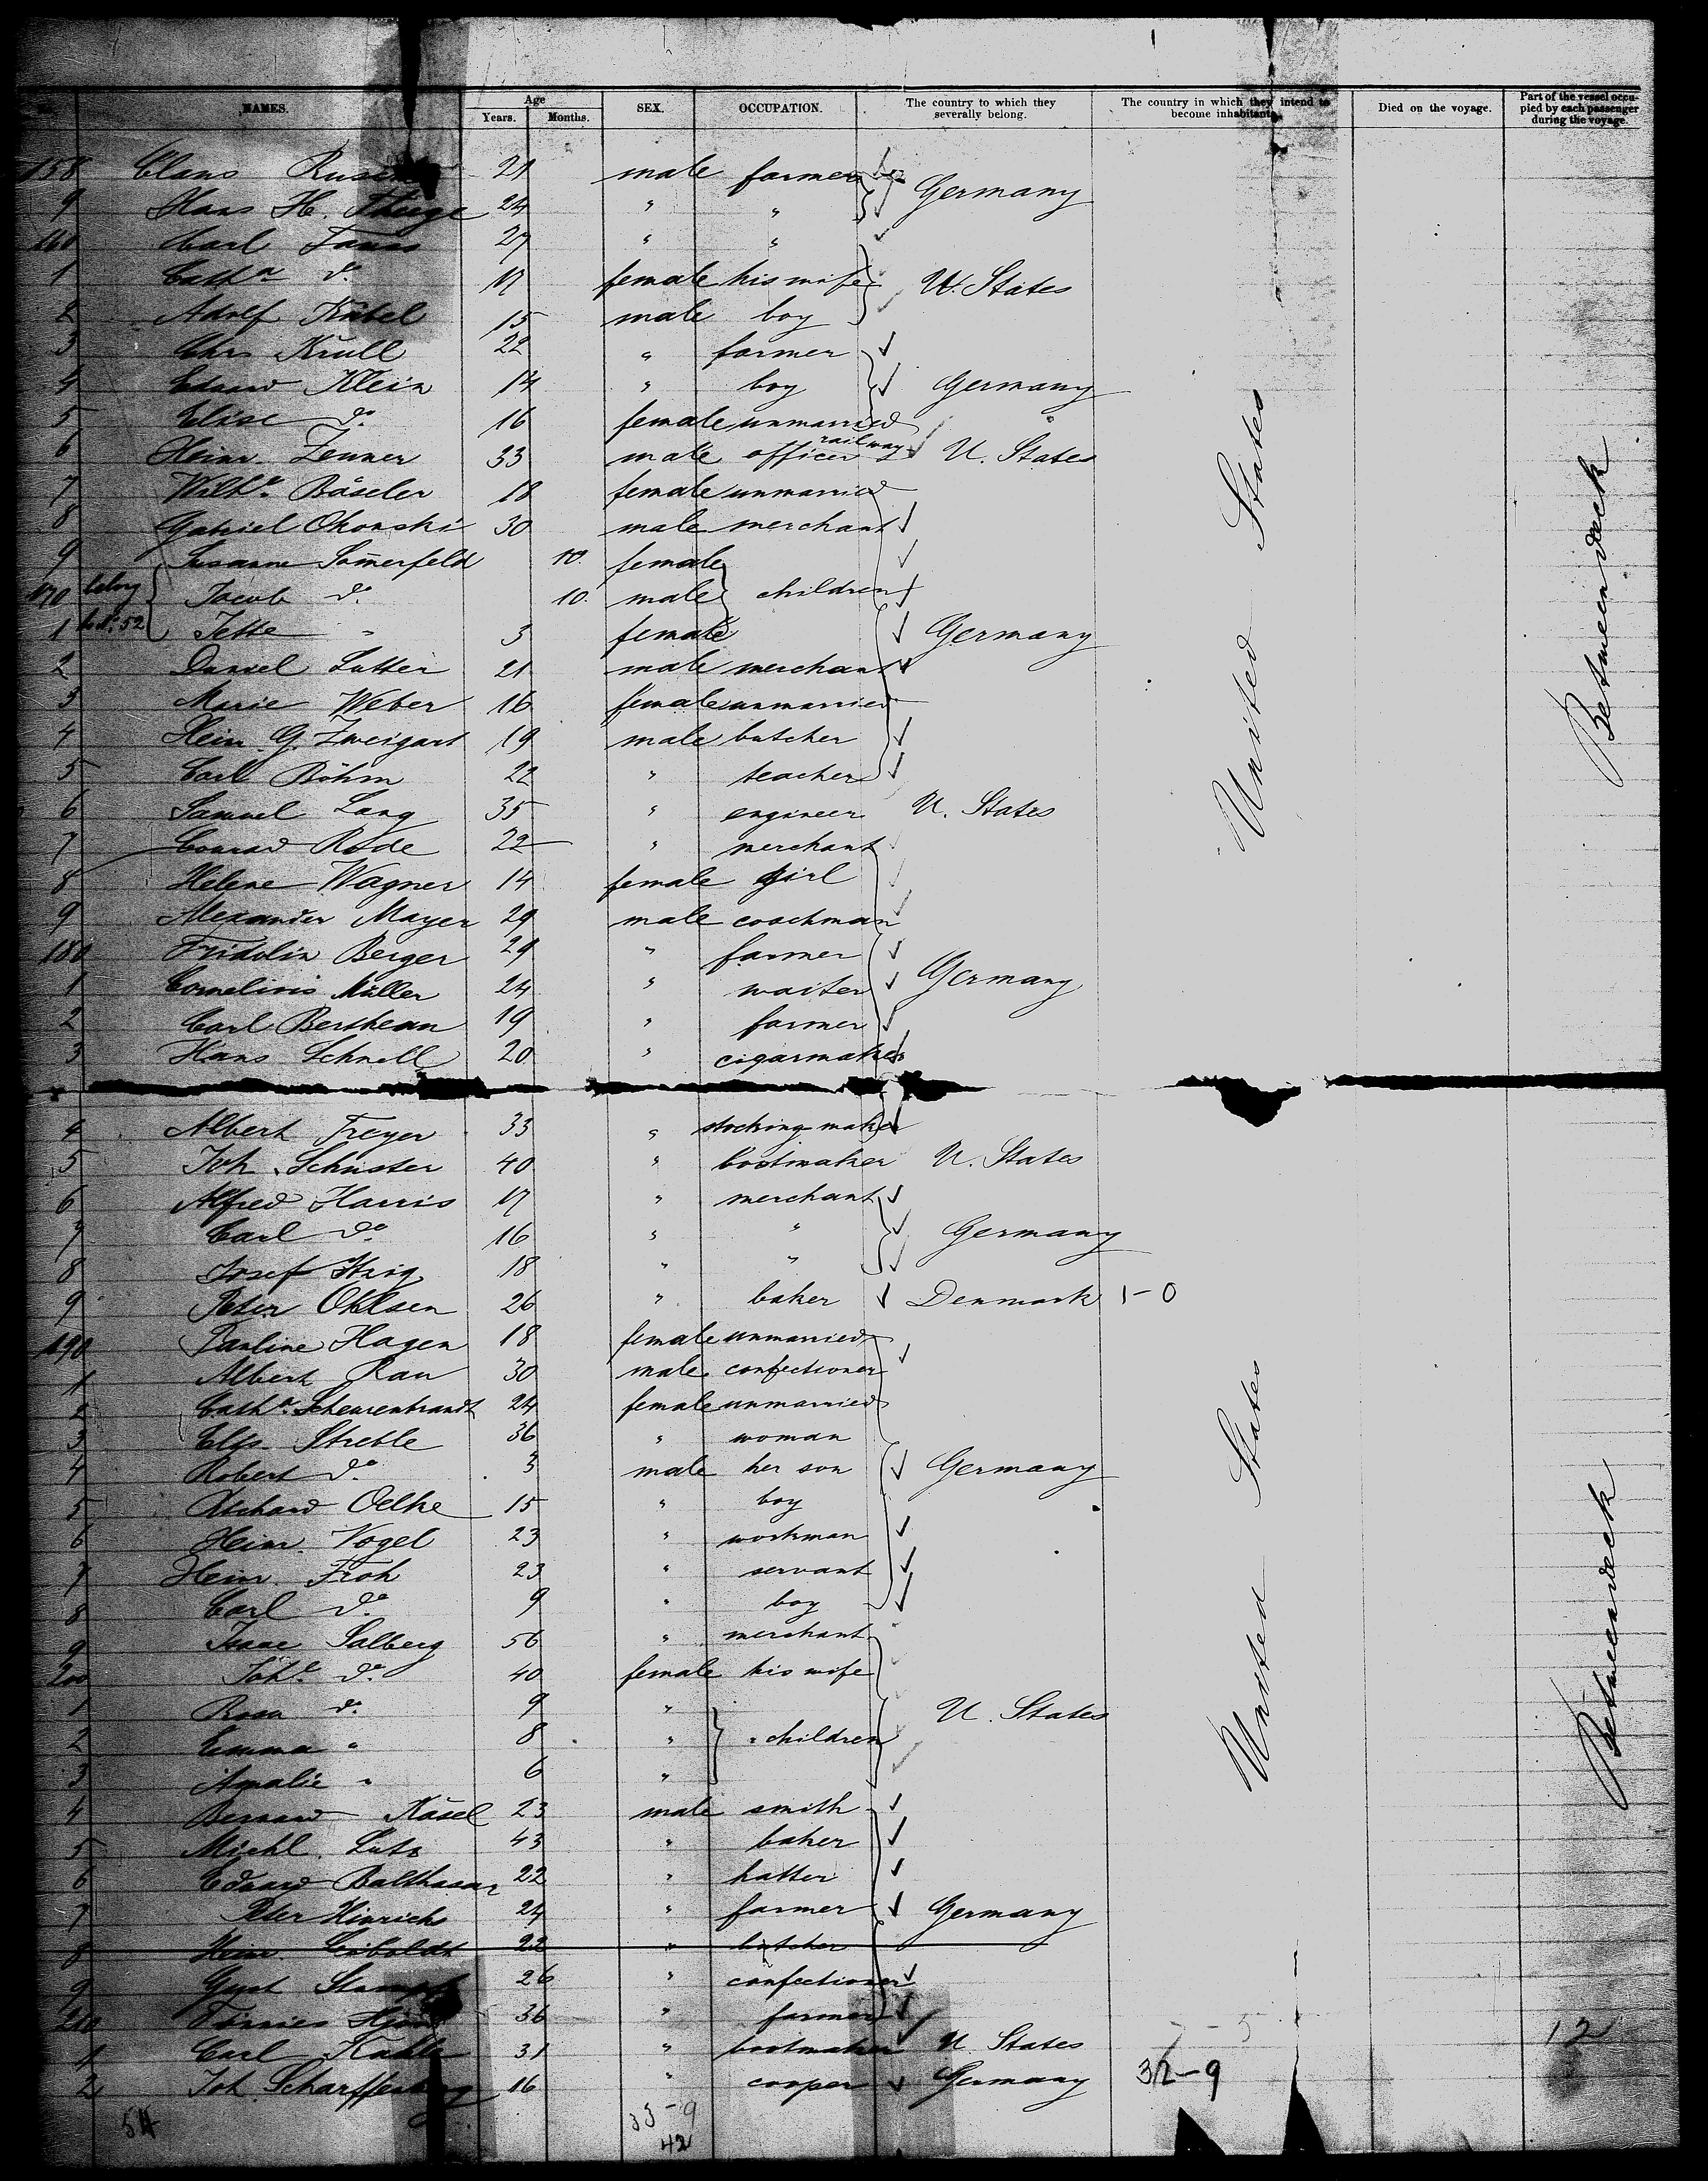 No. NAMES. Age Years. Months. SEX. OCCUPATION. The country to which they severally belong. The country in which they intend to become inhabitants. Died on the voyage. Part of the vessel occupied by each passenger during the voyage.
158 Claus 21 male farmer
9 Hans H. Thiege 24 " " Germany
160 Carl 27 " "
1 Cath.a do. 17 female his wife U. States
2 Adolf Kübel 15 male boy
3 Chrs Krull 22 " farmer
4 Eduard Klein 14 " boy Germany
5 Elise do. 16 female unmarried
6 Heinr. Zenner 33 male railway officer U. States
7 Wilh.e Bäseler 18 female unmarried
8 Gabriel Okonski 30 male merchant
9 Susanne Som̄erfeld 10. female
170 belong Jacob do. 10. male children
1 to No. 52 Jette " 3 female Germany
2 Daniel Sutter 21 male merchant
3 Marie Weber 16 female unmarried
4 Heinr. G. Zweigart 19 male butcher
5 Carl Böhm 22 " teacher
6 Samuel Lang 35 " engineer U. States
7 Conrad Rode 22 " merchant
8 Helene Wagner 14 female girl
9 Alexander Mayer 29 male coachman
180 Fridolin Berger 29 " farmer
1 Cornelius Müller 24 " waiter Germany
2 Carl Bertheau 19 " farmer
3 Hans Schnell 20 " cigarmaker
United States
Betweendeck
4 Albert Freyer 33 " stocking maker
5 Joh. Schuster 40 " bootmaker U. States
6 Alfred Harris 17 " merchant
7 Carl do. 16 " " Germany
8 Josef 18 " "
9 Peter Ohlsen 26 " baker Denmark 1-0
190 Pauline Hagen 18 female unmarried
1 Albert Rau 30 male confectioner
2 Cath.a Scheurenbrandt 24 female unmarried
3 Elis. Streble 36 " woman
4 Robert do. 3 male her son Germany
5 Richard Oelke 15 " boy
6 Heinr. Vogel 23 " workman
7 Heinr. Froh 23 " servant
8 Carl do. 9 " boy
9 Isaac Salberg 56 " merchant
200 Joh.e do. 40 female his wife
1 Rosa do. 9 " U. States
2 Emma " 8 " children
3 Amalie " 6 "
4 Bernard Käsel 23 male smith
5 Michl. Lutz 43 " baker
6 Eduard Balthasar 22 " hatter
7 Peter Hinrichs 24 " farmer Germany
8 Heinr. Leiboldt 22 " butcher
9 Gust. 26 " confectioner
210 36 " farmer
1 Carl Kahle 31 " bootmaker U. States 12
2 Joh. Scharffenberg 16 " cooper Germany 32-9
United States
Betweendeck
54 33-9
42